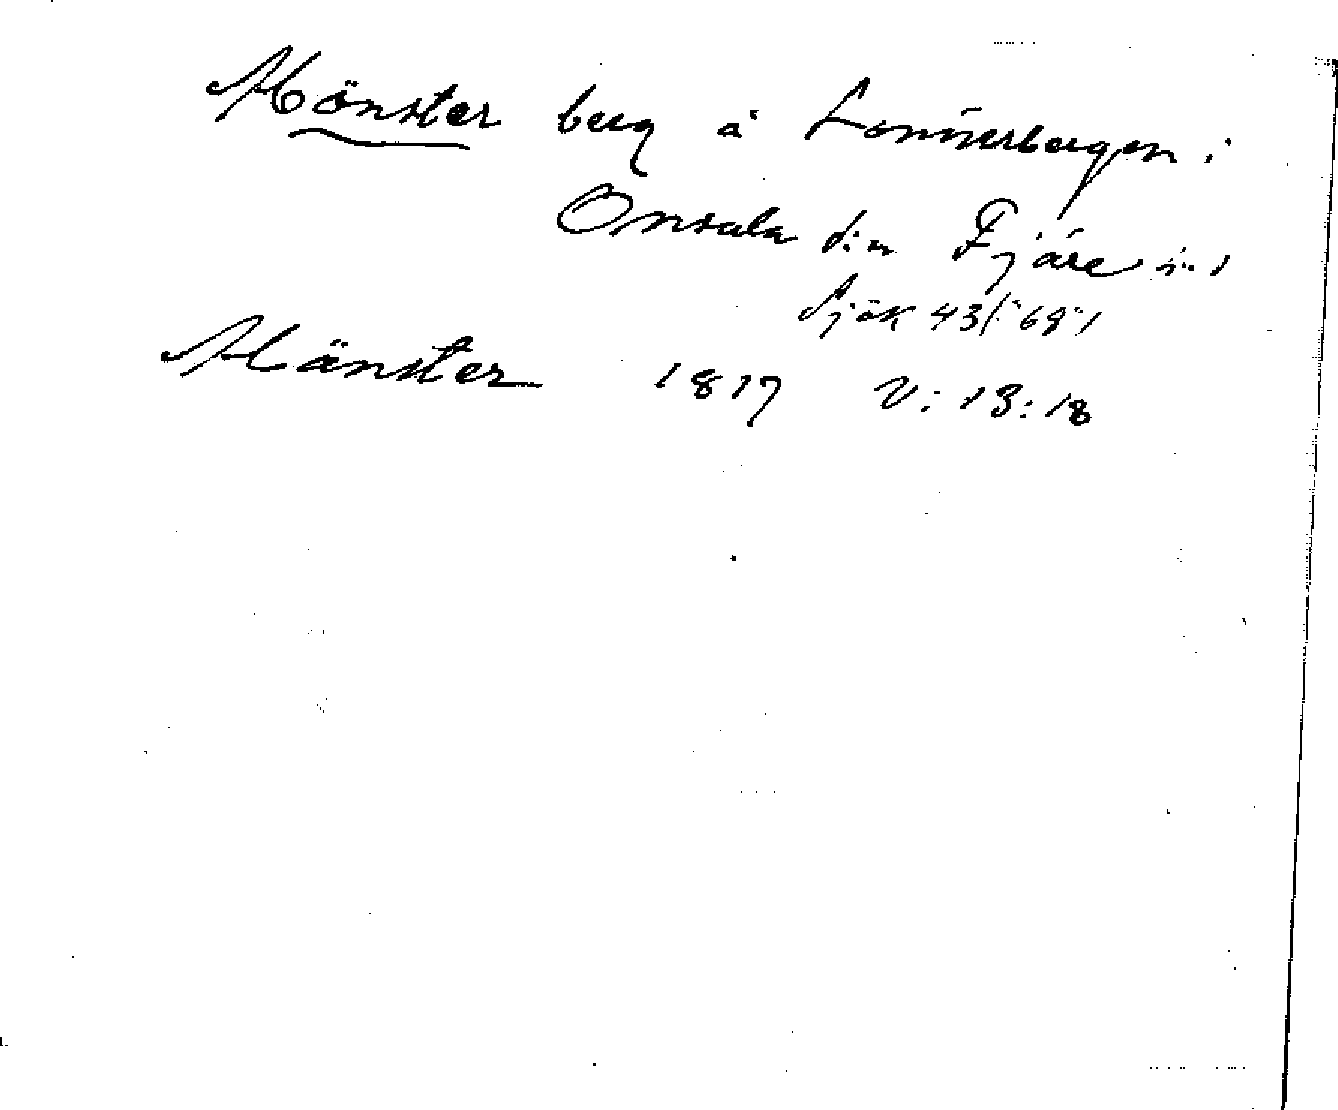 Mönster berg å Lonnerbergen i
Onsala s:n Fjäre
Sjök 43 (: 68:)
Mänster 1817 V: 13: 18